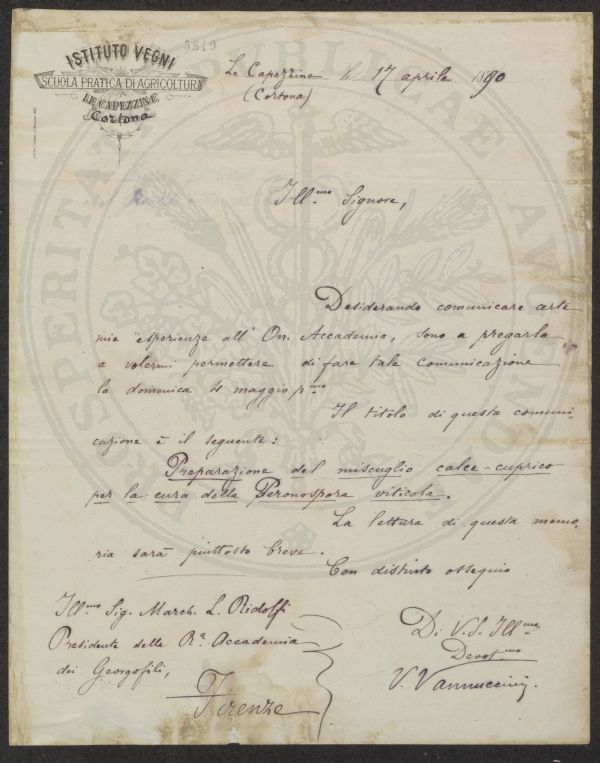 ISTITUTO VEGNI
SCUOLA PRATICA DI AGRICOLTURA
LE CAPEZZINE
Cortona
5819
Le Capezzine li 17 aprile 1890
(Cortona)
Ill.mo Signore,
Desiderando comunicare certe
mie esperienze all' On. Accademia, sono a pregarla
a volermi permettere di fare tale comunicazione
la domenica 4 maggio p.mo
Il titolo di questa comuni-
cazione è il seguente:
Preparazione del miscuglio calce-cuprico
per la cura della Peronospora viticola.
La lettura di questa memo,
ria sarà piuttosto breve.
Con distinto ossequio
Ill.mo Sig. March. L. Ridolfi
Presidente della R.a Accademia
dei Georgofili,
Firenze
Di V.S. Ill.ma
Devot.mo
V. Vannuccini.
PROSPERITATI PUBLICAE AUGENDAE